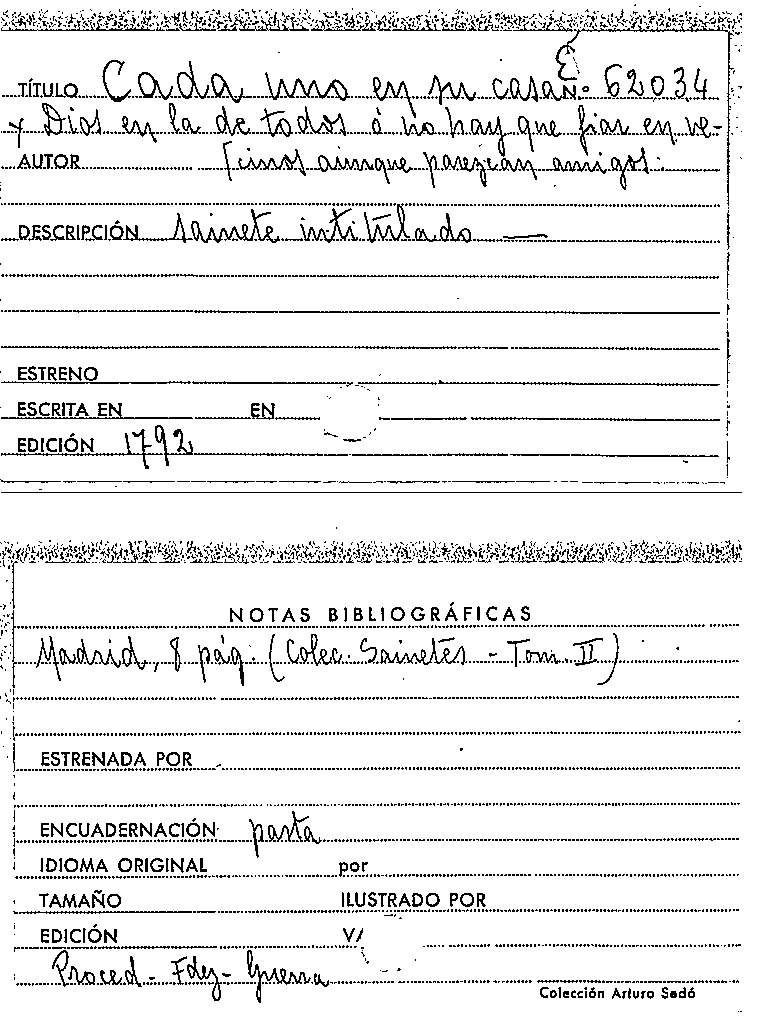 TÍTULO Cada uno en su casa Nº 62034
y Dios en la de todos ó no hay que fiar en ve-
AUTOR cinos aunque parezcan amigos.
DESCRIPCIÓN Sainete intitulado —
ESTRENO
ESCRITA EN EN
EDICIÓN 1792
NOTAS BIBLIOGRÁFICAS
Madrid, 8 pág. (Colec. Sainetes - Tom. II)
ESTRENADA POR
ENCUADERNACIÓN pasta
IDIOMA ORIGINAL por
TAMAÑO ILUSTRADO POR
EDICIÓN V/
Proced - Fdez - Guerra
Colección Arturo Sedó